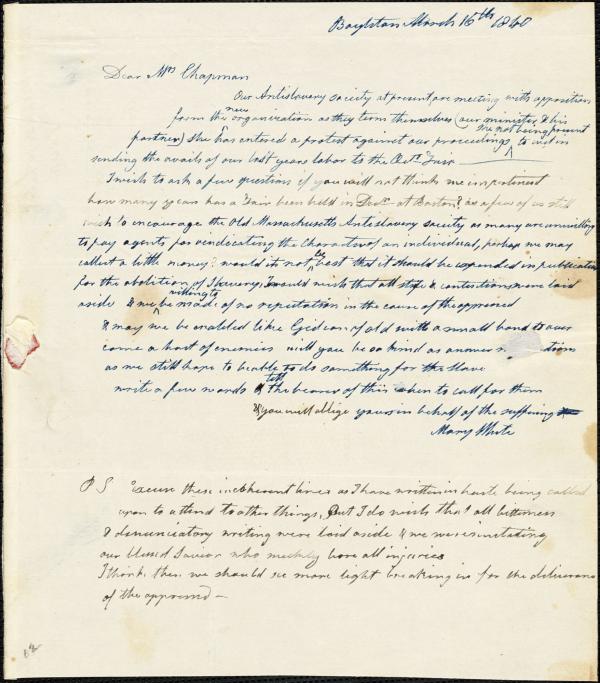 Boylston March 16th 1840
Dear Mrs Chapman
Our Antislavery society at present are meeting with opposition
from the new organization as they term themselves (our minister & his
partner) She has entered a protest against our proceedings, she not being present to
sending the avails of our last years labor to the Fair
I wish to ask a few questions if you will not think me impertinent
how many years has a Fair been held in Dec. at Boston? as a few of us still
wish to encourage the Old Massachusetts Antislavery society as many are unwilling
to pay agents for vindicating the character of an individual, perhaps we may
collect a little money? would it not be best that it should be expended in publications
for the abolition of Slavery; I would wish that all strife & contention were laid
aside & we willing to be made of no reputation in the cause of the oppressed
& may we be enabled like Gideon of old with a small band to over
come a host of enemies will you be so kind as answer
as we still hope to be able to do something for the slave
write a few words & tell the bearer of this when to call for them
& you will oblige yours in behalf of the suffering
Mary White
PS Excuse these incoherent lines as I have written in haste being called
upon to attend to other things, But I do wish that all bitterness
& denunciatory writing were laid aside & we were imitating
our blessed Savior who meekly bore all injuries
I think then we should see more light breaking in for the deliverance
of the oppressed —